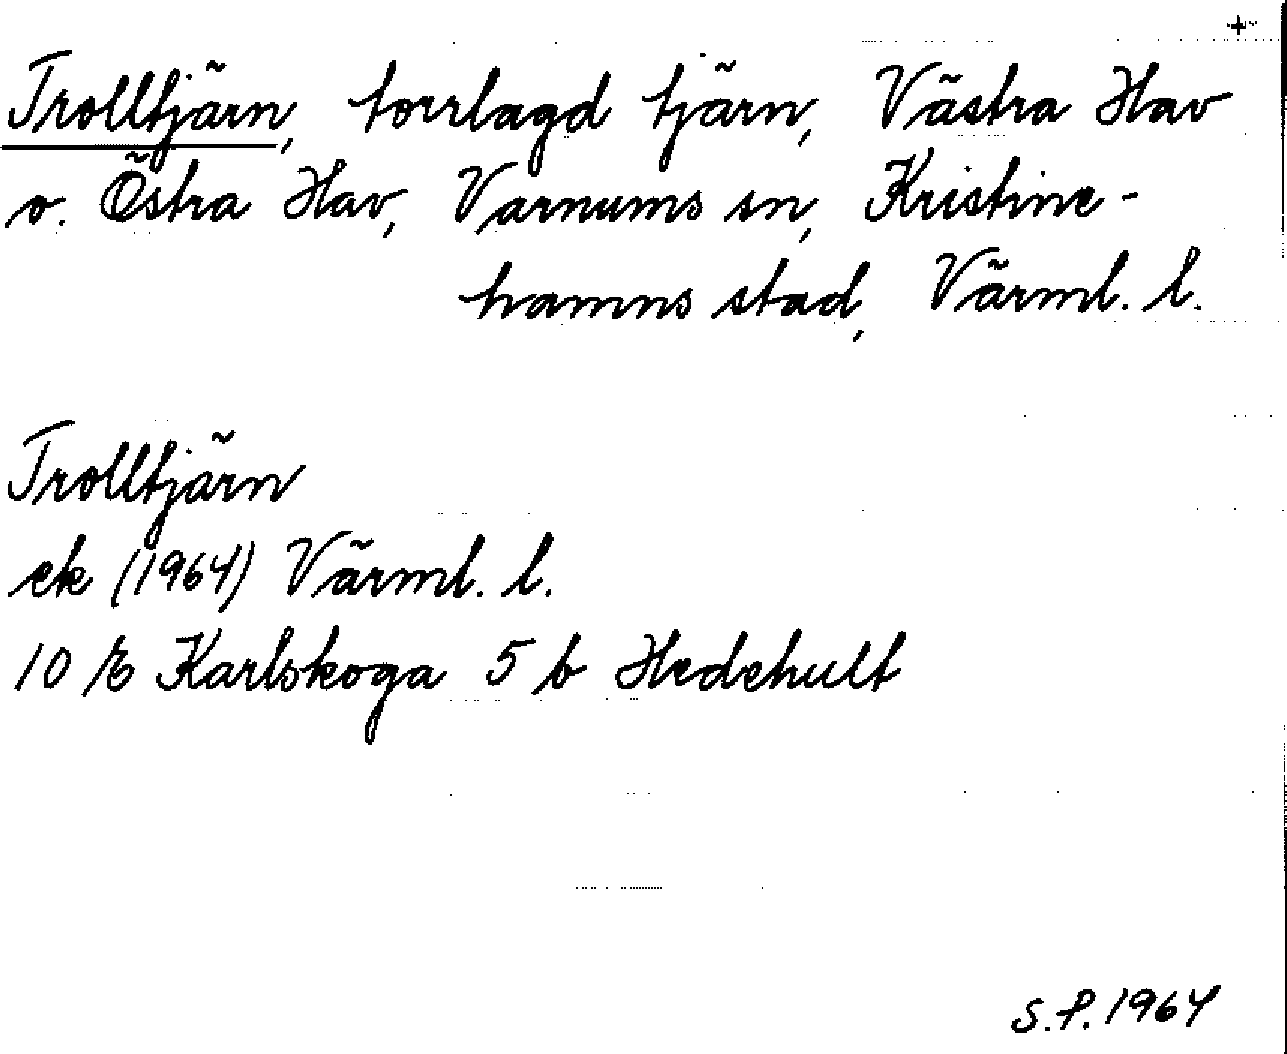 +
Trolltjärn, torrlagd tjärn, Västra Hav
o. Östra Hav, Varnums sn, Kristine-
hamns stad, Värml. l.
Trolltjärn
ek (1964) Värml. l.
10 E Karlskoga 5 b Hedehult
S.P. 1964